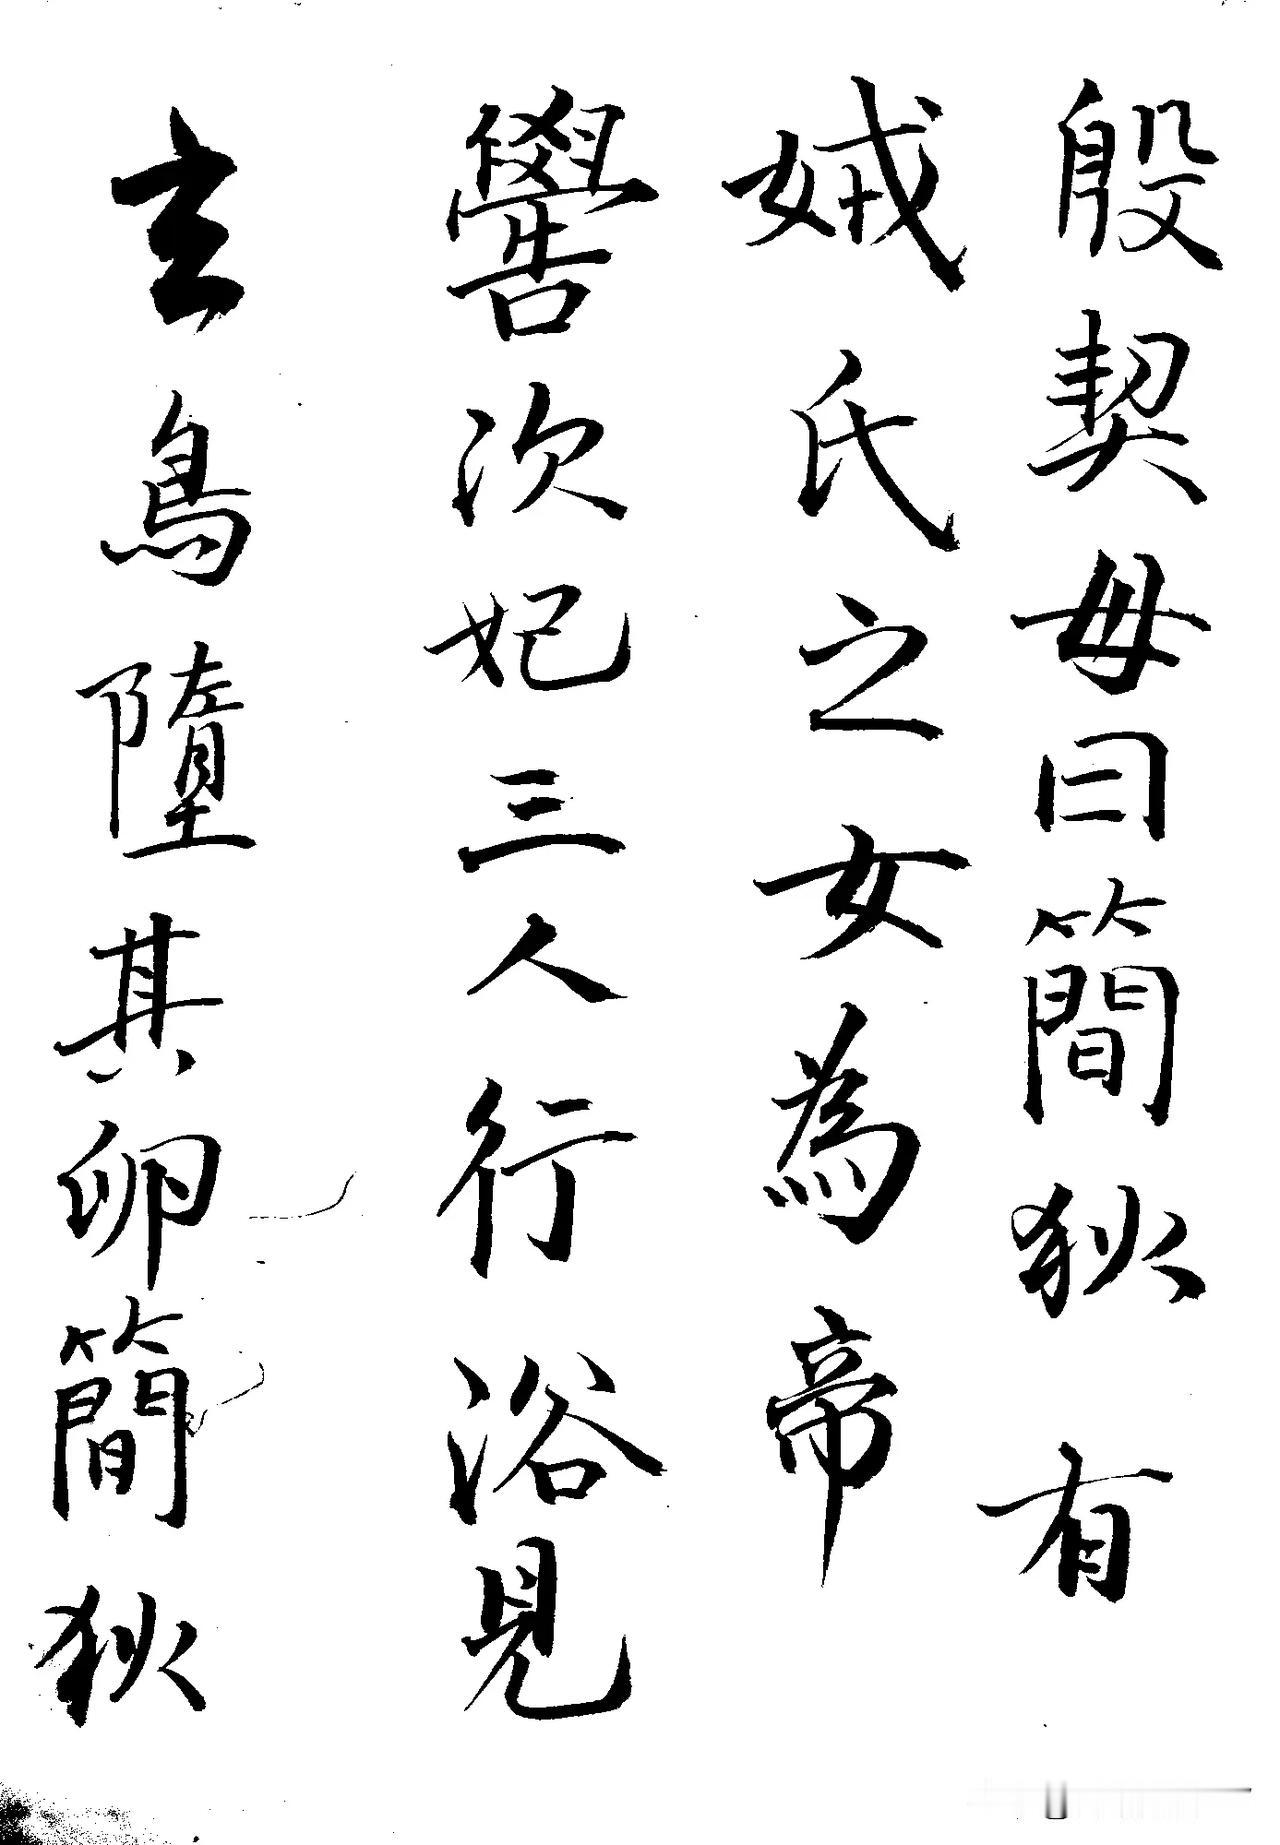 殷契母曰簡狄有
娀氏之女為帝
嚳次妃三人行浴見
玄鳥墮其卵簡狄